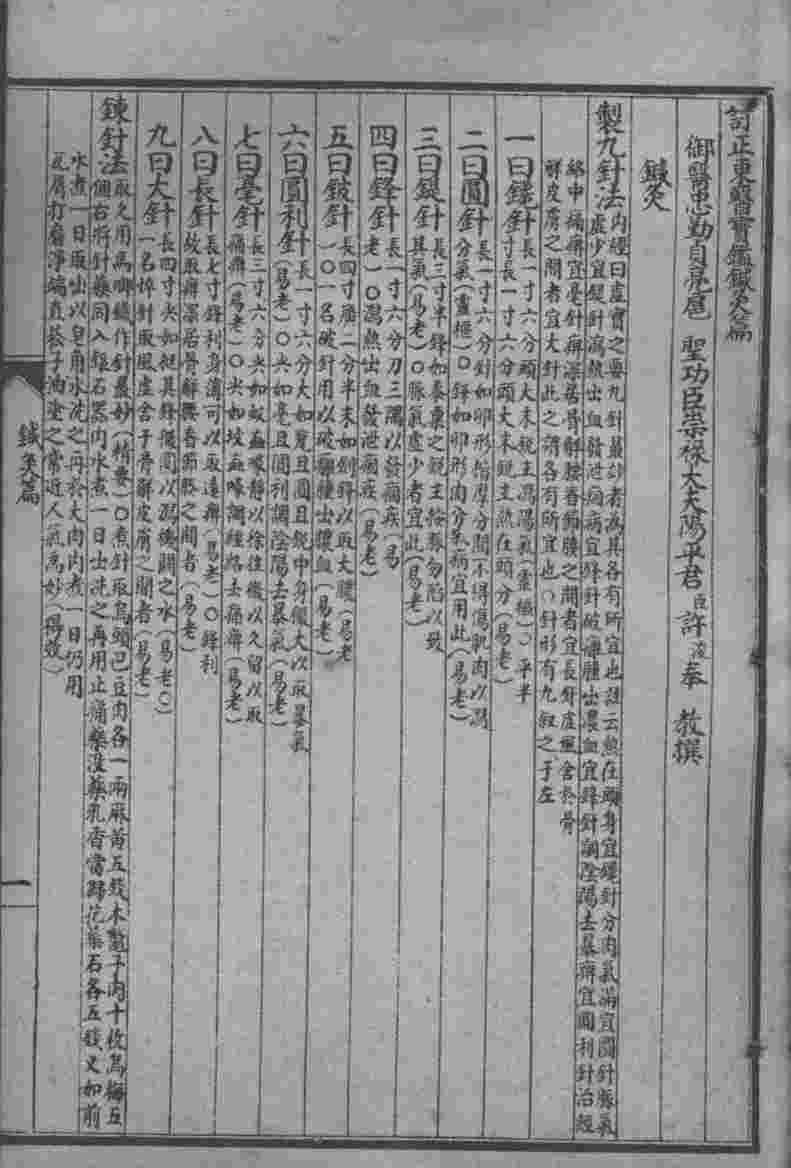 訂正東醫寶鑑鍼灸篇
御醫忠勤貞亮扈 聖功臣崇祿大夫陽平君臣許浚奉 敎撰
鍼灸
製九針法內經曰虛實之要九針最妙者爲其各有所宜也註云熱在頭身宜鑱針分肉氣滿宜圓針脈氣
虛少宜鍉針瀉熱出血發泄痼病宜鋒針破癰腫出膿血宜鋒針調陰陽去暴痺宜圓利針治經
絡中痛痺宜毫針痺深居骨解腰脊節腠之間者宜長針虛風舍於骨
解皮膚之間者宜大針此之謂各有所宜也○針形有九叙之于左
一曰鑱針長一寸六分頭大末銳主瀉陽氣(靈樞)○平半
寸長一寸六分頭大末銳主熱在頭分(易老)
二曰圓針長一寸六分針如卵形揩摩分間不得傷肌肉以瀉
分氣(靈樞)○鋒如卵形肉分氣病宜用此(易老)
三曰鍉針長三寸半鋒如黍粟之銳主按脈勿陷以致
其氣(易老)○脈氣虛少者宜此(易老)
四曰鋒針長一寸六分刃三隅以發痼疾(易
老)○瀉熱出血發泄痼疾(易老)
五曰鈹針長四寸廣二分半末如劍鋒以取大膿(易老
)○一名破針用以破癰腫出膿血(易老)
六曰圓利針長一寸六分大如氂且圓且銳中身微大以取暴氣
(易老)○尖如毫且圓利調陰陽去暴氣(易老)
七曰毫針長三寸六分尖如蚊虻喙靜以徐往微以久留以取
痛痺(易老)○尖如蚊虻喙調經絡去痛痺(易老)
八曰長針長七寸鋒利身薄可以取遠痺(易老)○鋒利
故取痺深居骨解腰脊節腠之間者(易老)
九曰大針長四寸尖如挺其鋒微圓以瀉機關之水(易老○)
一名焠針取風虛舍于骨解皮膚之間者(易老)
鍊針法取久用馬啣鐵作針最妙(精要)○煮針取烏頭巴豆肉各一兩麻黃五錢木鱉子肉十枚烏梅五
個右將針藥同入銀石器內水煮一日士洗之再用止痛藥沒藥乳香當歸花蘂石各五錢又如前
水煮一日取出以皂角水洗之再於犬肉內煮一日仍用
瓦屑打磨淨端直菘子油塗之常近人氣爲妙(得效)
鍼灸篇
一